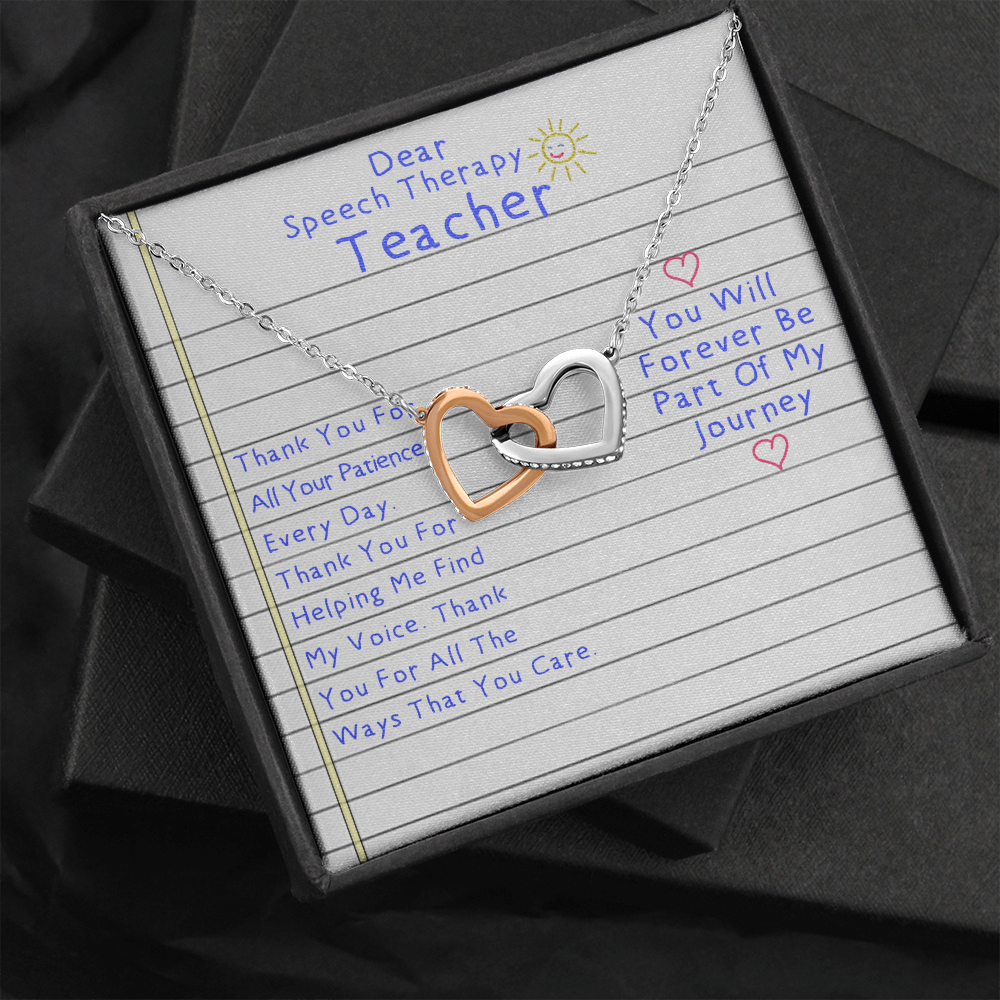 Dear
Speech Therapy
Teacher
Thank You For
All Your Patience
Every Day.
Thank You For
Helping Me Find
My Voice. Thank
You For All The
Ways That You Care.
You Will
Forever Be
Part Of My
Journey